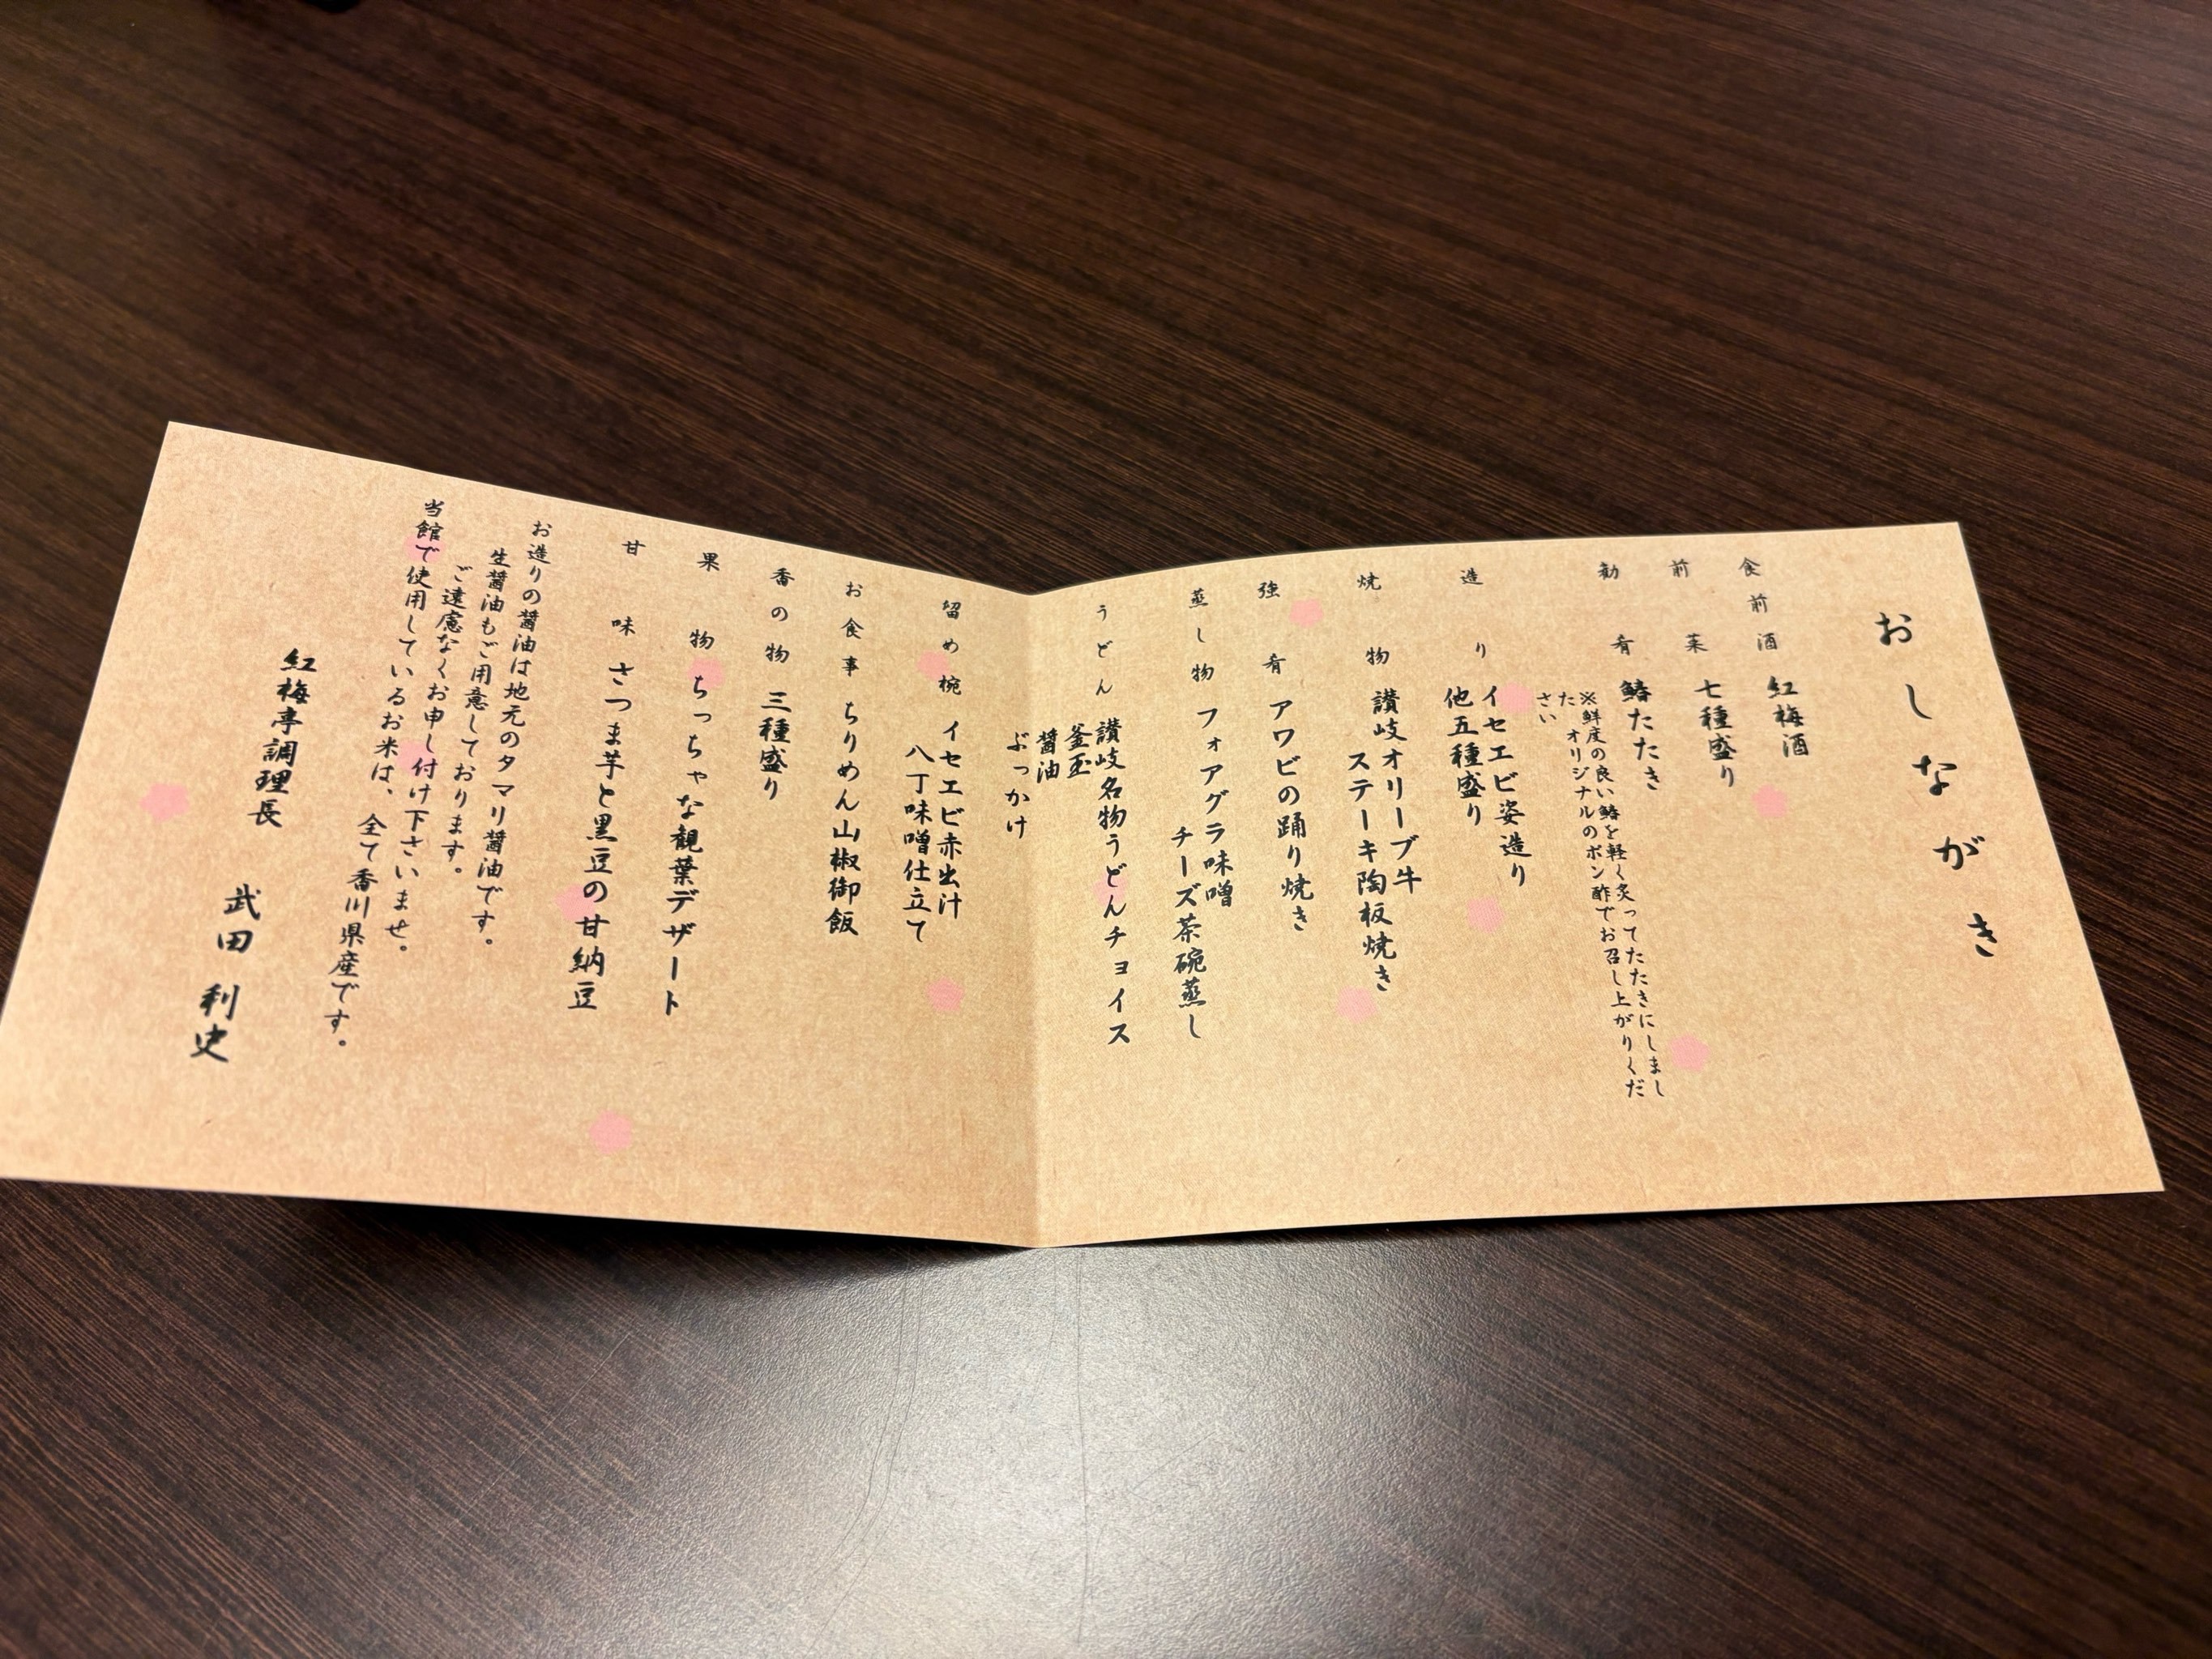 おしながき
食前酒 紅梅酒
前菜 七種盛り
勧肴 鰆たたき
※鮮度の良い鰆を軽く炙ってたたきにしまし
た オリジナルのポン酢でお召し上がりくだ
さい
造り イセエビ姿造り
他五種盛り
焼物 讃岐オリーブ牛
ステーキ陶板焼き
強肴 アワビの踊り焼き
蒸し物 フォアグラ味噌
チーズ茶碗蒸し
うどん 讃岐名物うどんチョイス
釜玉
醤油
ぶっかけ
留め椀 イセエビ赤出汁
八丁味噌仕立て
お食事 ちりめん山椒御飯
香の物 三種盛り
果物 ちっちゃな観葉デザート
甘味 さつま芋と黒豆の甘納豆
お造りの醤油は地元のタマリ醤油です。
生醤油もご用意しております。
ご遠慮なくお申し付け下さいませ。
当館で使用しているお米は、全て香川県産です。
紅梅亭調理長 武田 利史